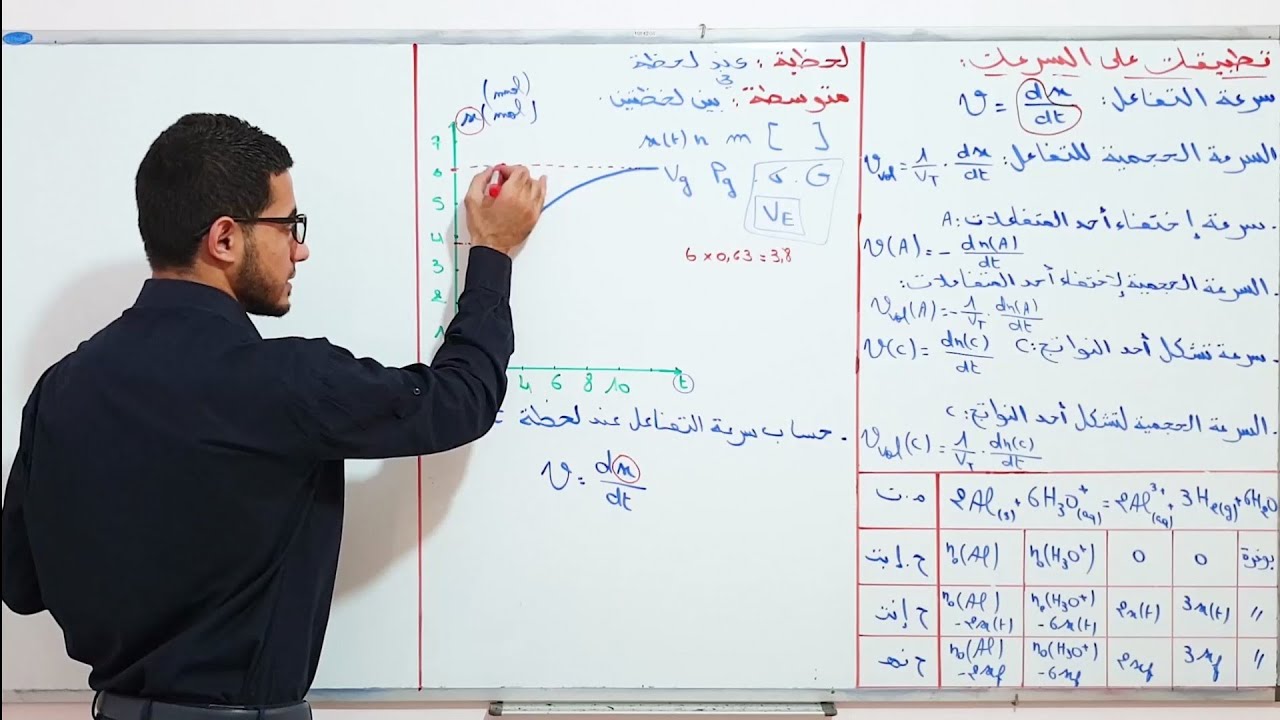 تطبيقات على السرعات:
سرعة التفاعل: v = dx/dt
السرعة الحجمية للتفاعل: v_vol = 1/V_T . dx/dt
. سرعة إختفاء أحد المتفاعلات A:
v(A) = - dn(A)/dt
. السرعة الحجمية لإختفاء أحد المتفاعلات:
v_vol(A) = - 1/V_T . dn(A)/dt
. سرعة تشكل أحد النواتج: C v(C) = dn(C)/dt
. السرعة الحجمية لتشكل أحد النواتج: C
v_vol(C) = 1/V_T . dn(C)/dt
م.ت 2Al(s) + 6H3O+(aq) = 2Al3+(aq) + 3H2(g) + 6H2O
ح.إبت n0(Al) n0(H3O+) 0 0 بوفرة
ح إنت n0(Al) -2x(t) n0(H3O+) -6x(t) 2x(t) 3x(t) //
ح نها n0(Al) -2xf n0(H3O+) -6xf 2xf 3xf //
لحظية: عند لحظة
متوسطة: بين لحظتين.
x(t) n m [ ]
Vg Pg . σ . G
VE
6 x 0,63 = 3,8
(mmol)
x(mol)
7
6
5
4
3
2
1
4 6 8 10 t
. حساب سرعة التفاعل عند لحظة t
v = dx/dt